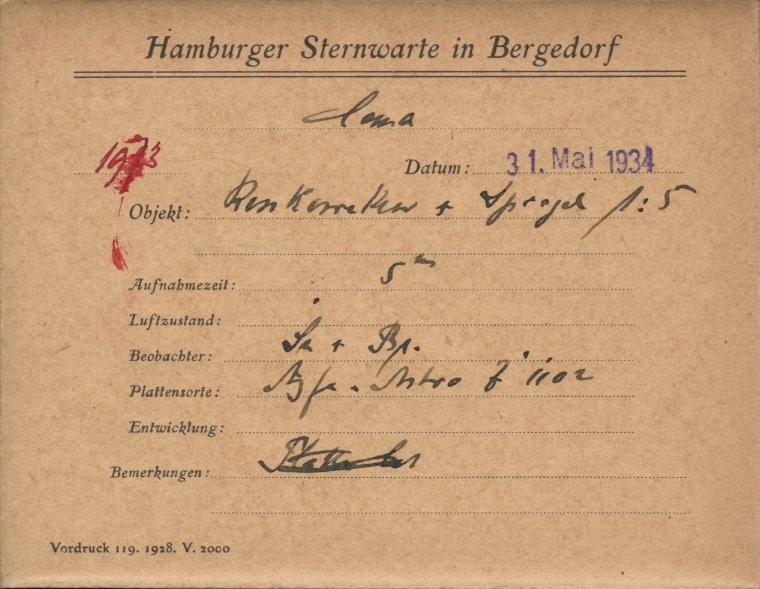 Hamburger Sternwarte in Bergedorf
Coma
Datum: 31. Mai 1934
Objekt: + Spiegel 1:5
Aufnahmezeit: 5ᵐ
Luftzustand:
Beobachter: +
Plattensorte: Agfa - Astro Z 1102
Entwicklung:
Bemerkungen:
Vordruck 119. 1928. V. 2000